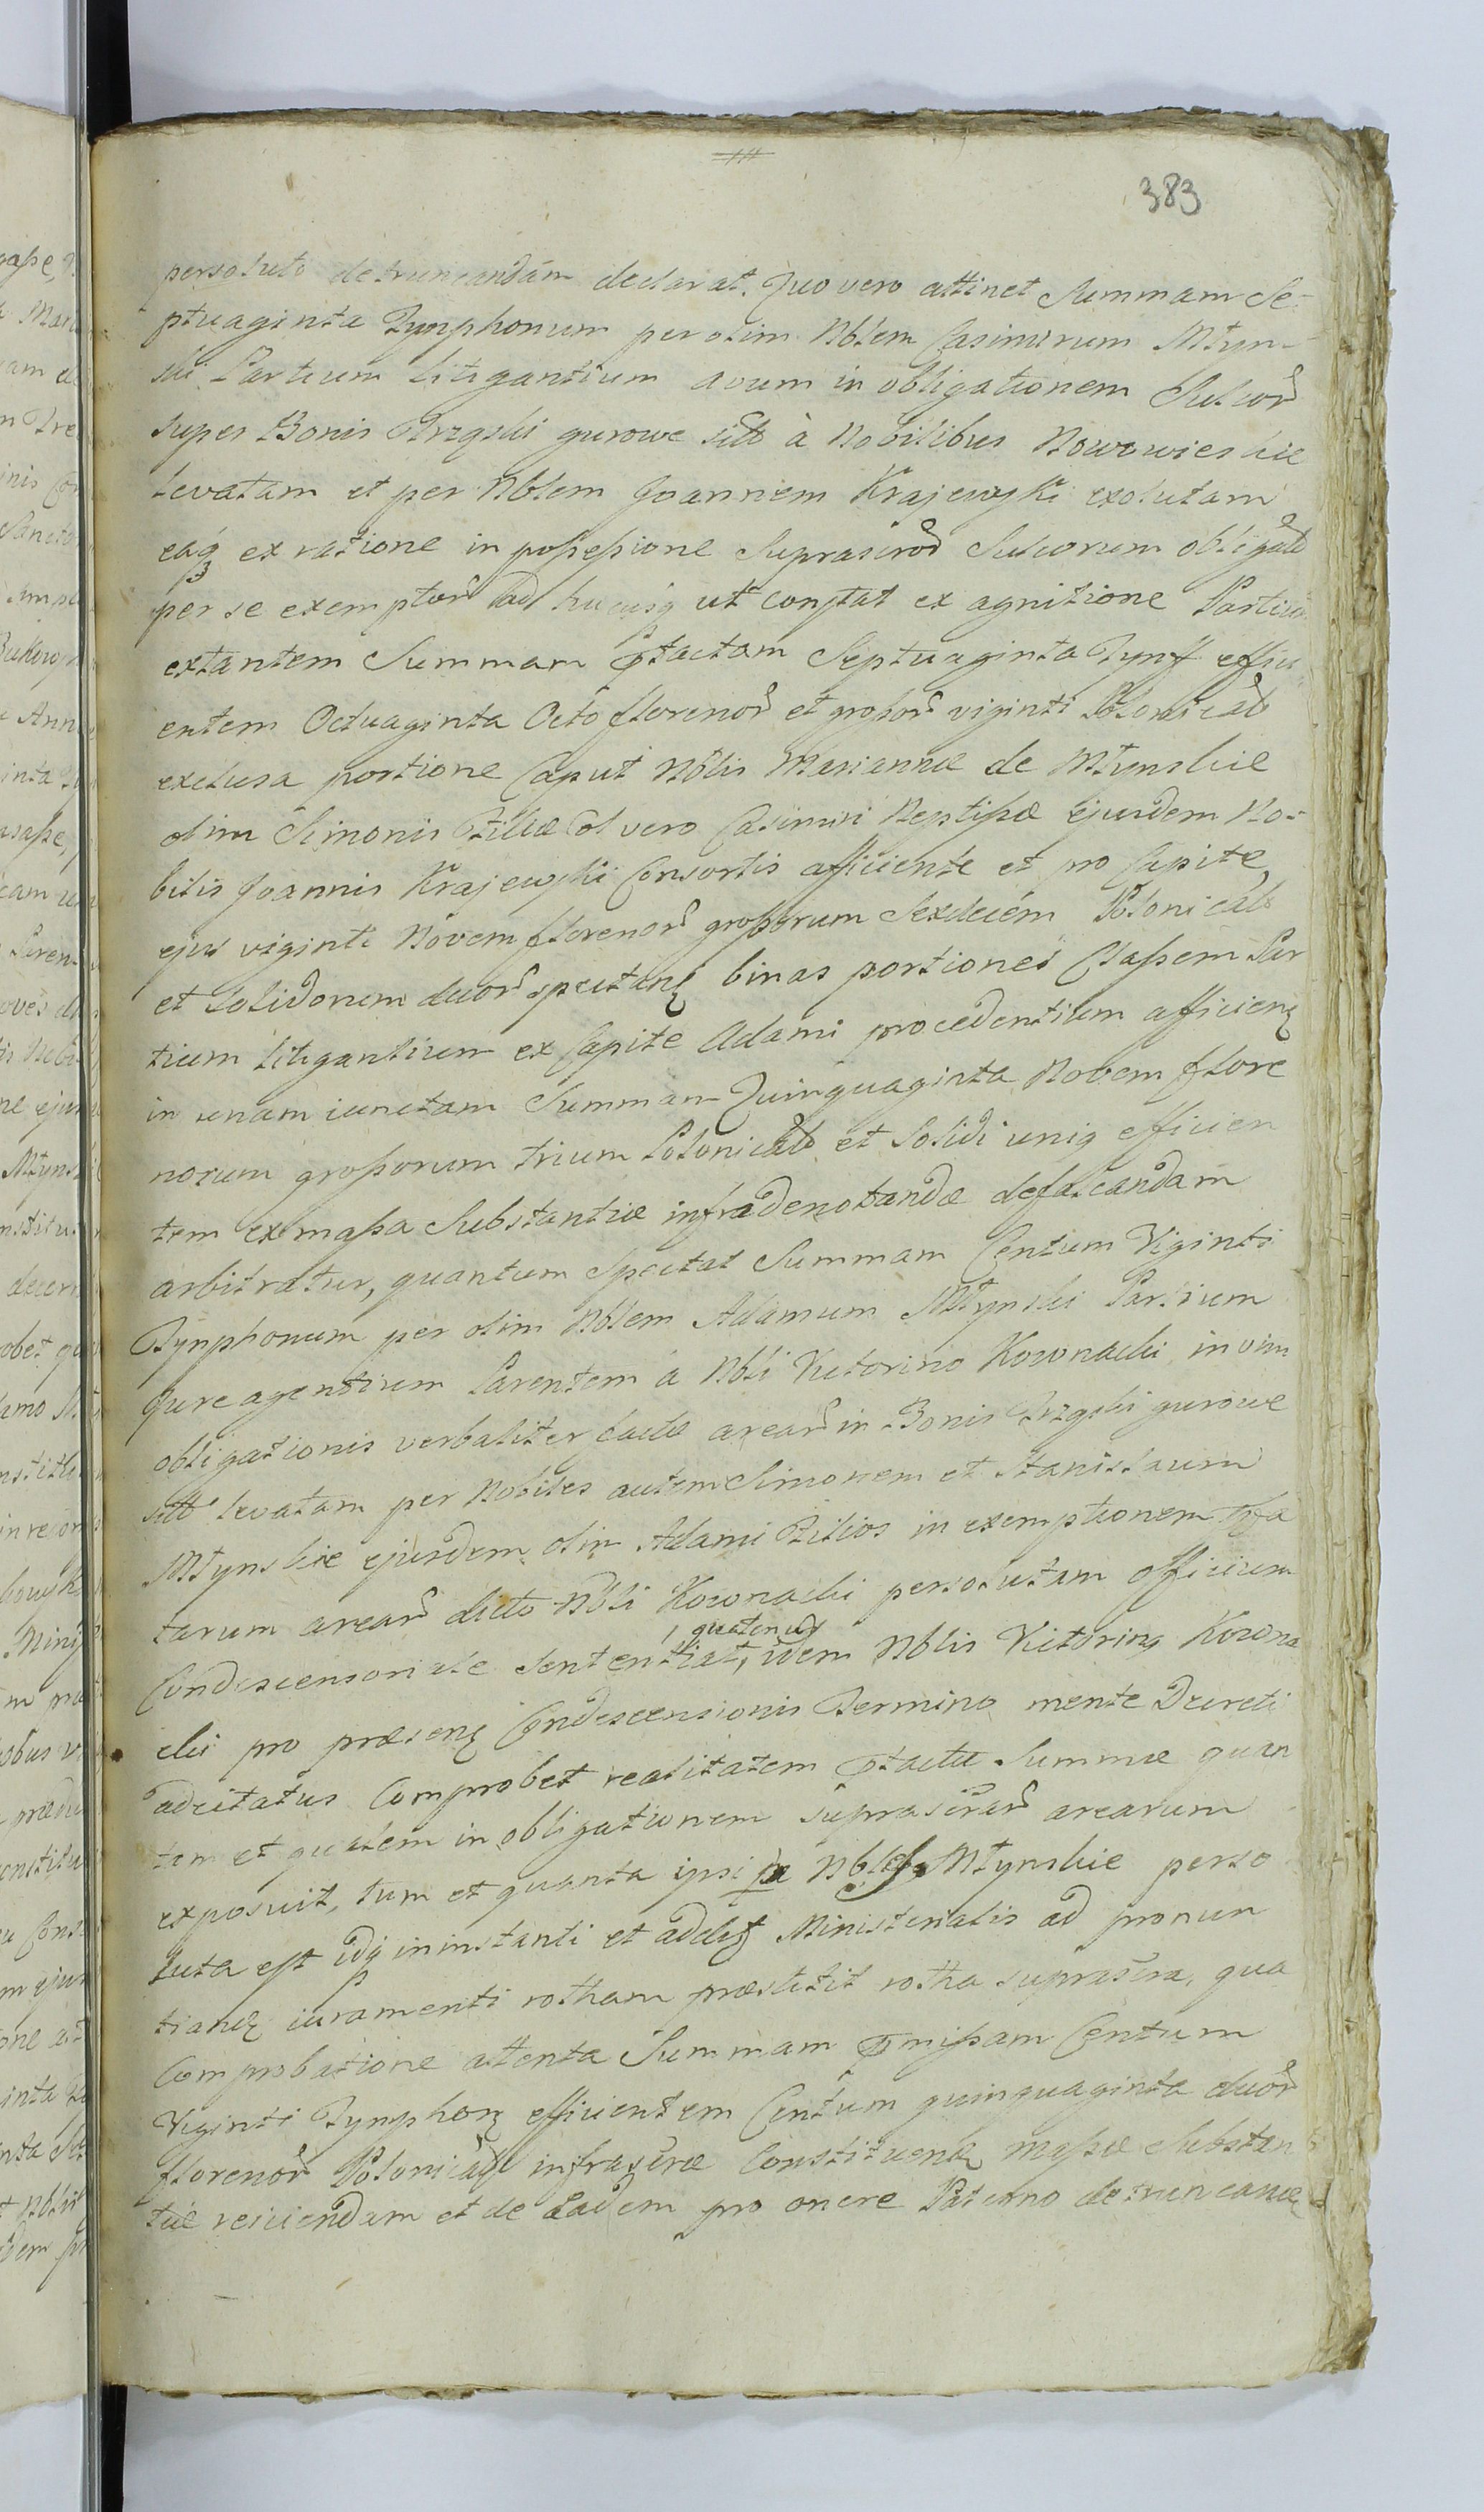 383
persoluto detruncandam declarat. Quo vero attinet Summam Se-
ptuaginta Tynphonum per olim Nblem Casimirum Młyn-
ski Partium litigantium avum in obligationem Sulcor̃
super Bonis Trząski gurowe sitto à Nobilibus Nowowieskie
levatam et per Nblem Joannem Krajewski exolutam
eaq̃ ex ratione in possessione Suprascrōr Sulcorum obligato
per se exemptor̃ ad hucusq ut constat ex agnitione Partium
extantem Summam p̃tactam Septuaginta Tynf effici
entem Octuaginta Octo florenor̃ et grossor̃ viginti Polonical̃
exclusa portione Caput Nblis Mariannæ de Młynskie
olim Simonis Filiæ ol vero Casimiri Neptissæ ejusdem No-
bilis Joannis Krajewski Consortis afficiente et pro Capite
ejus viginti Novem florenor̃ grossorum Sexdecém Polonical̃
et Solidorum duor̃ spectanę binas portiones Classem Par
tium litigantium ex Capite Adami procedentium afficienę
in unam iunctam Summam Quinquaginta Novem flore
norum grossorum trium Polonical̃ et Solidi uniq efficien
tem ex massa Substantiæ infradenotandæ defalcandam
arbitratur, quantum spectat Summam Centum Viginti
Tynphonum per olim Nblem Adamum Młynski Partium
Jure agentium Parentem a Nbli Victorino Koronacki in vim
obligationis verbaliter factæ arear̃ in Bonis Trząski gurowe
sitto levatam per Nobiles autem Simonem et Stanislaum
Młynskie ejusdem olim Adami Filios in exemptionem p̃fa
tarum arear̃ dicto Nbli Koronacki persolutam officium
Condescensoriale sententiat, quatenus idem Nblis Victorinq Korona
cki pro præsenę Condescensionis Termino mente Decreti
adcitatus Comprobet realitatem p̃tactæ Summæ quan
tam et qualem in obligationem suprascrar̃ arearum
exposuit, tum et quanta ipsi per Nbles Młynskie perso
luta est idq̃ in instanti et ad Ministerialis ad pronun
tiandę iuramenti rotham præstitit rotha suprascra, qua
Comprobatione attenta Summam p̃missam Centum
Viginti Tynphonę efficientem Centum quinquaginta duor̃
florenor̃ Polonical̃ infrascræ Constituendę massæ Substan
tiæ reiiciendam et de Eadem pro onere Paterno detruncandę